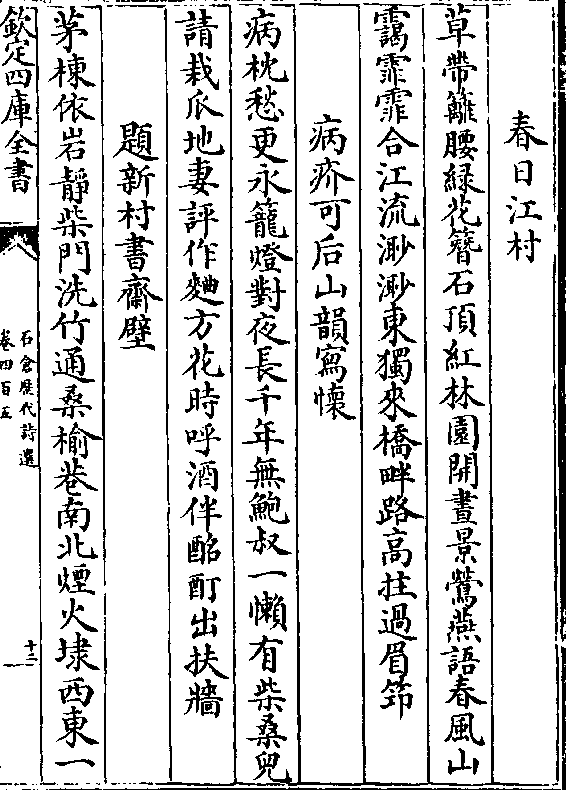 春日江村
草帶籬腰緑花簪石頂紅林園開晝景鶯燕語春風山
靄霏霏合江流渺渺東獨來橋畔路高拄過眉笻
病疥可后山韻寫懷
病枕愁更永籠燈對夜長千年無鮑叔一懶有柴桑兒
請栽瓜地妻評作麯方花時呼酒伴酩酊出扶牆
題新村書齋壁
茅棟依岩靜柴門洗竹通桑榆巷南北煙火埭西東一
欽定四庫全書
石倉歷代詩選
卷四百五
十三